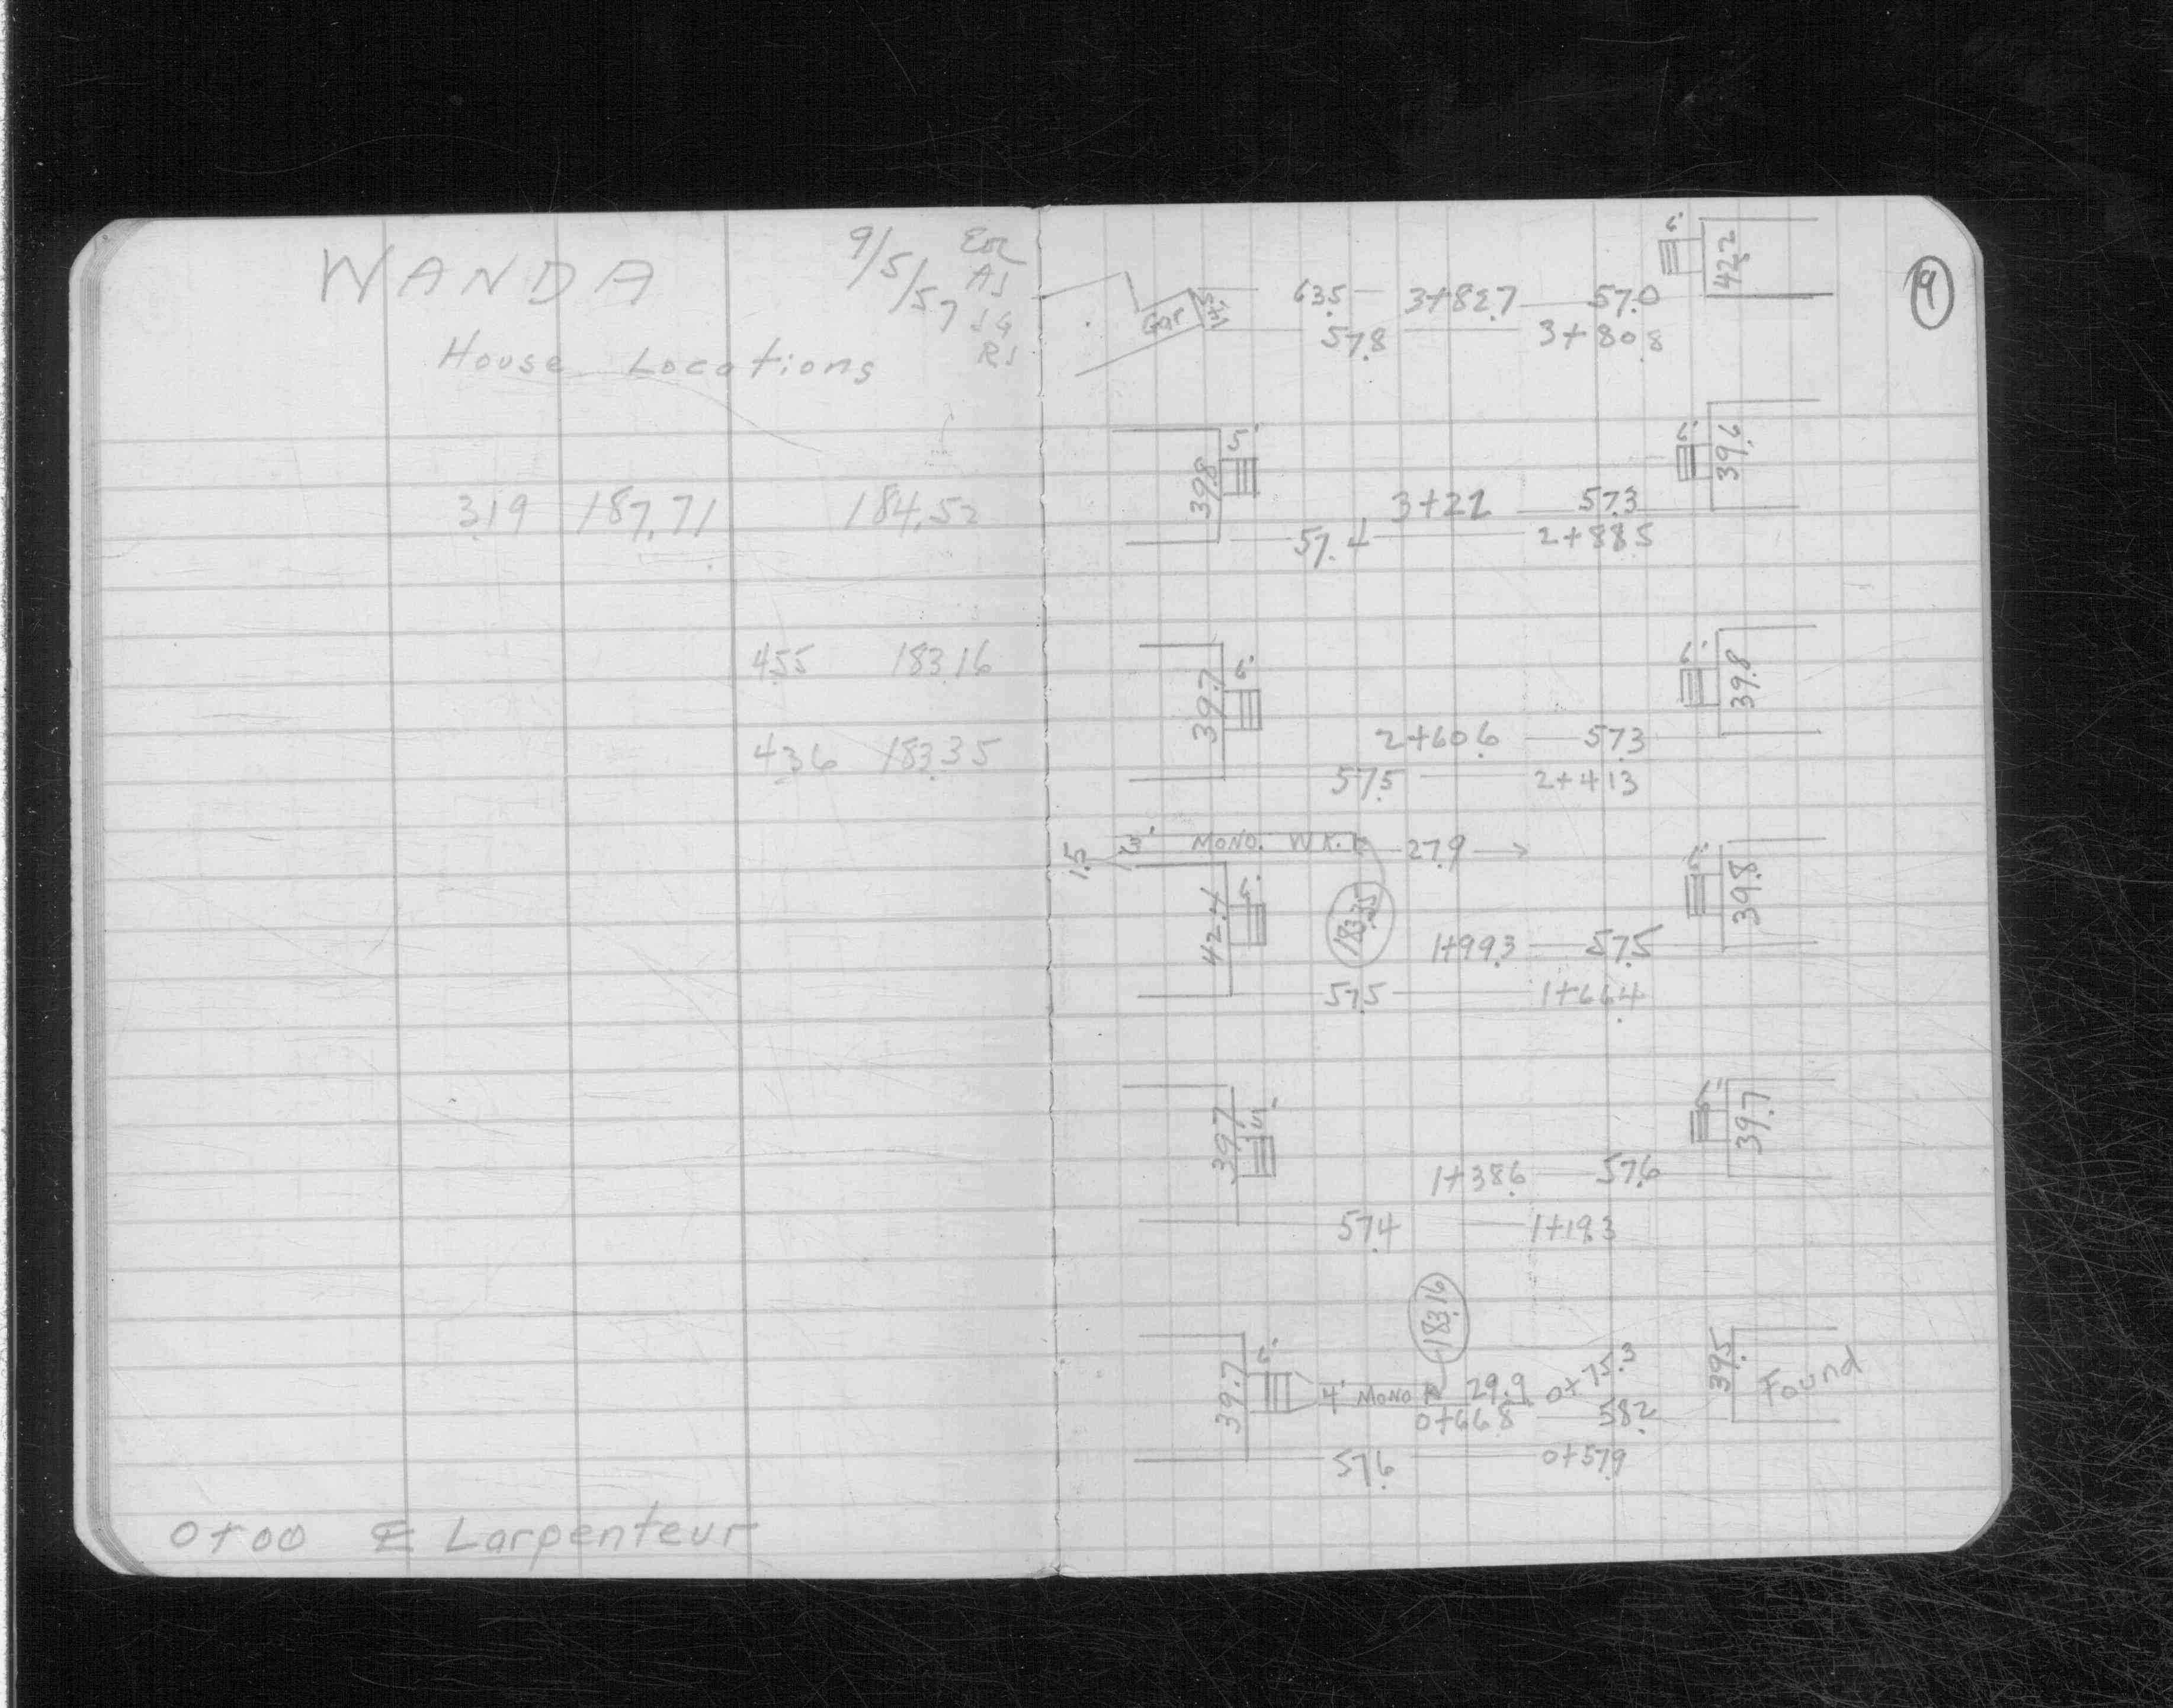 WANDA
9/5/57
AJ
RJ
House Locations
3.19 187.71 184.52
4.55 183.16
4.36 183.35
0+00 ₵ Larpenteur
9
6' 42.2
Gar 14.5 63.5 3+82.7 57.0
57.8 3+80.8
39.8 5' 6' 39.6
3+22 57.3
57.4 2+88.5
39.7 6' 39.8
2+60.6 57.3
57.5 2+41.3
1.5 3' MONO. WK. 27.9
42.4 5' 183.35 6' 39.8
1+99.3 57.5
57.5 1+66.4
39.7 5' 6' 39.7
1+38.6 57.6
57.4 1+19.3
183.16
39.7 4' MONO 29.9 0+75.3 39.5 Found
0+66.8 58.2
57.6 0+57.9